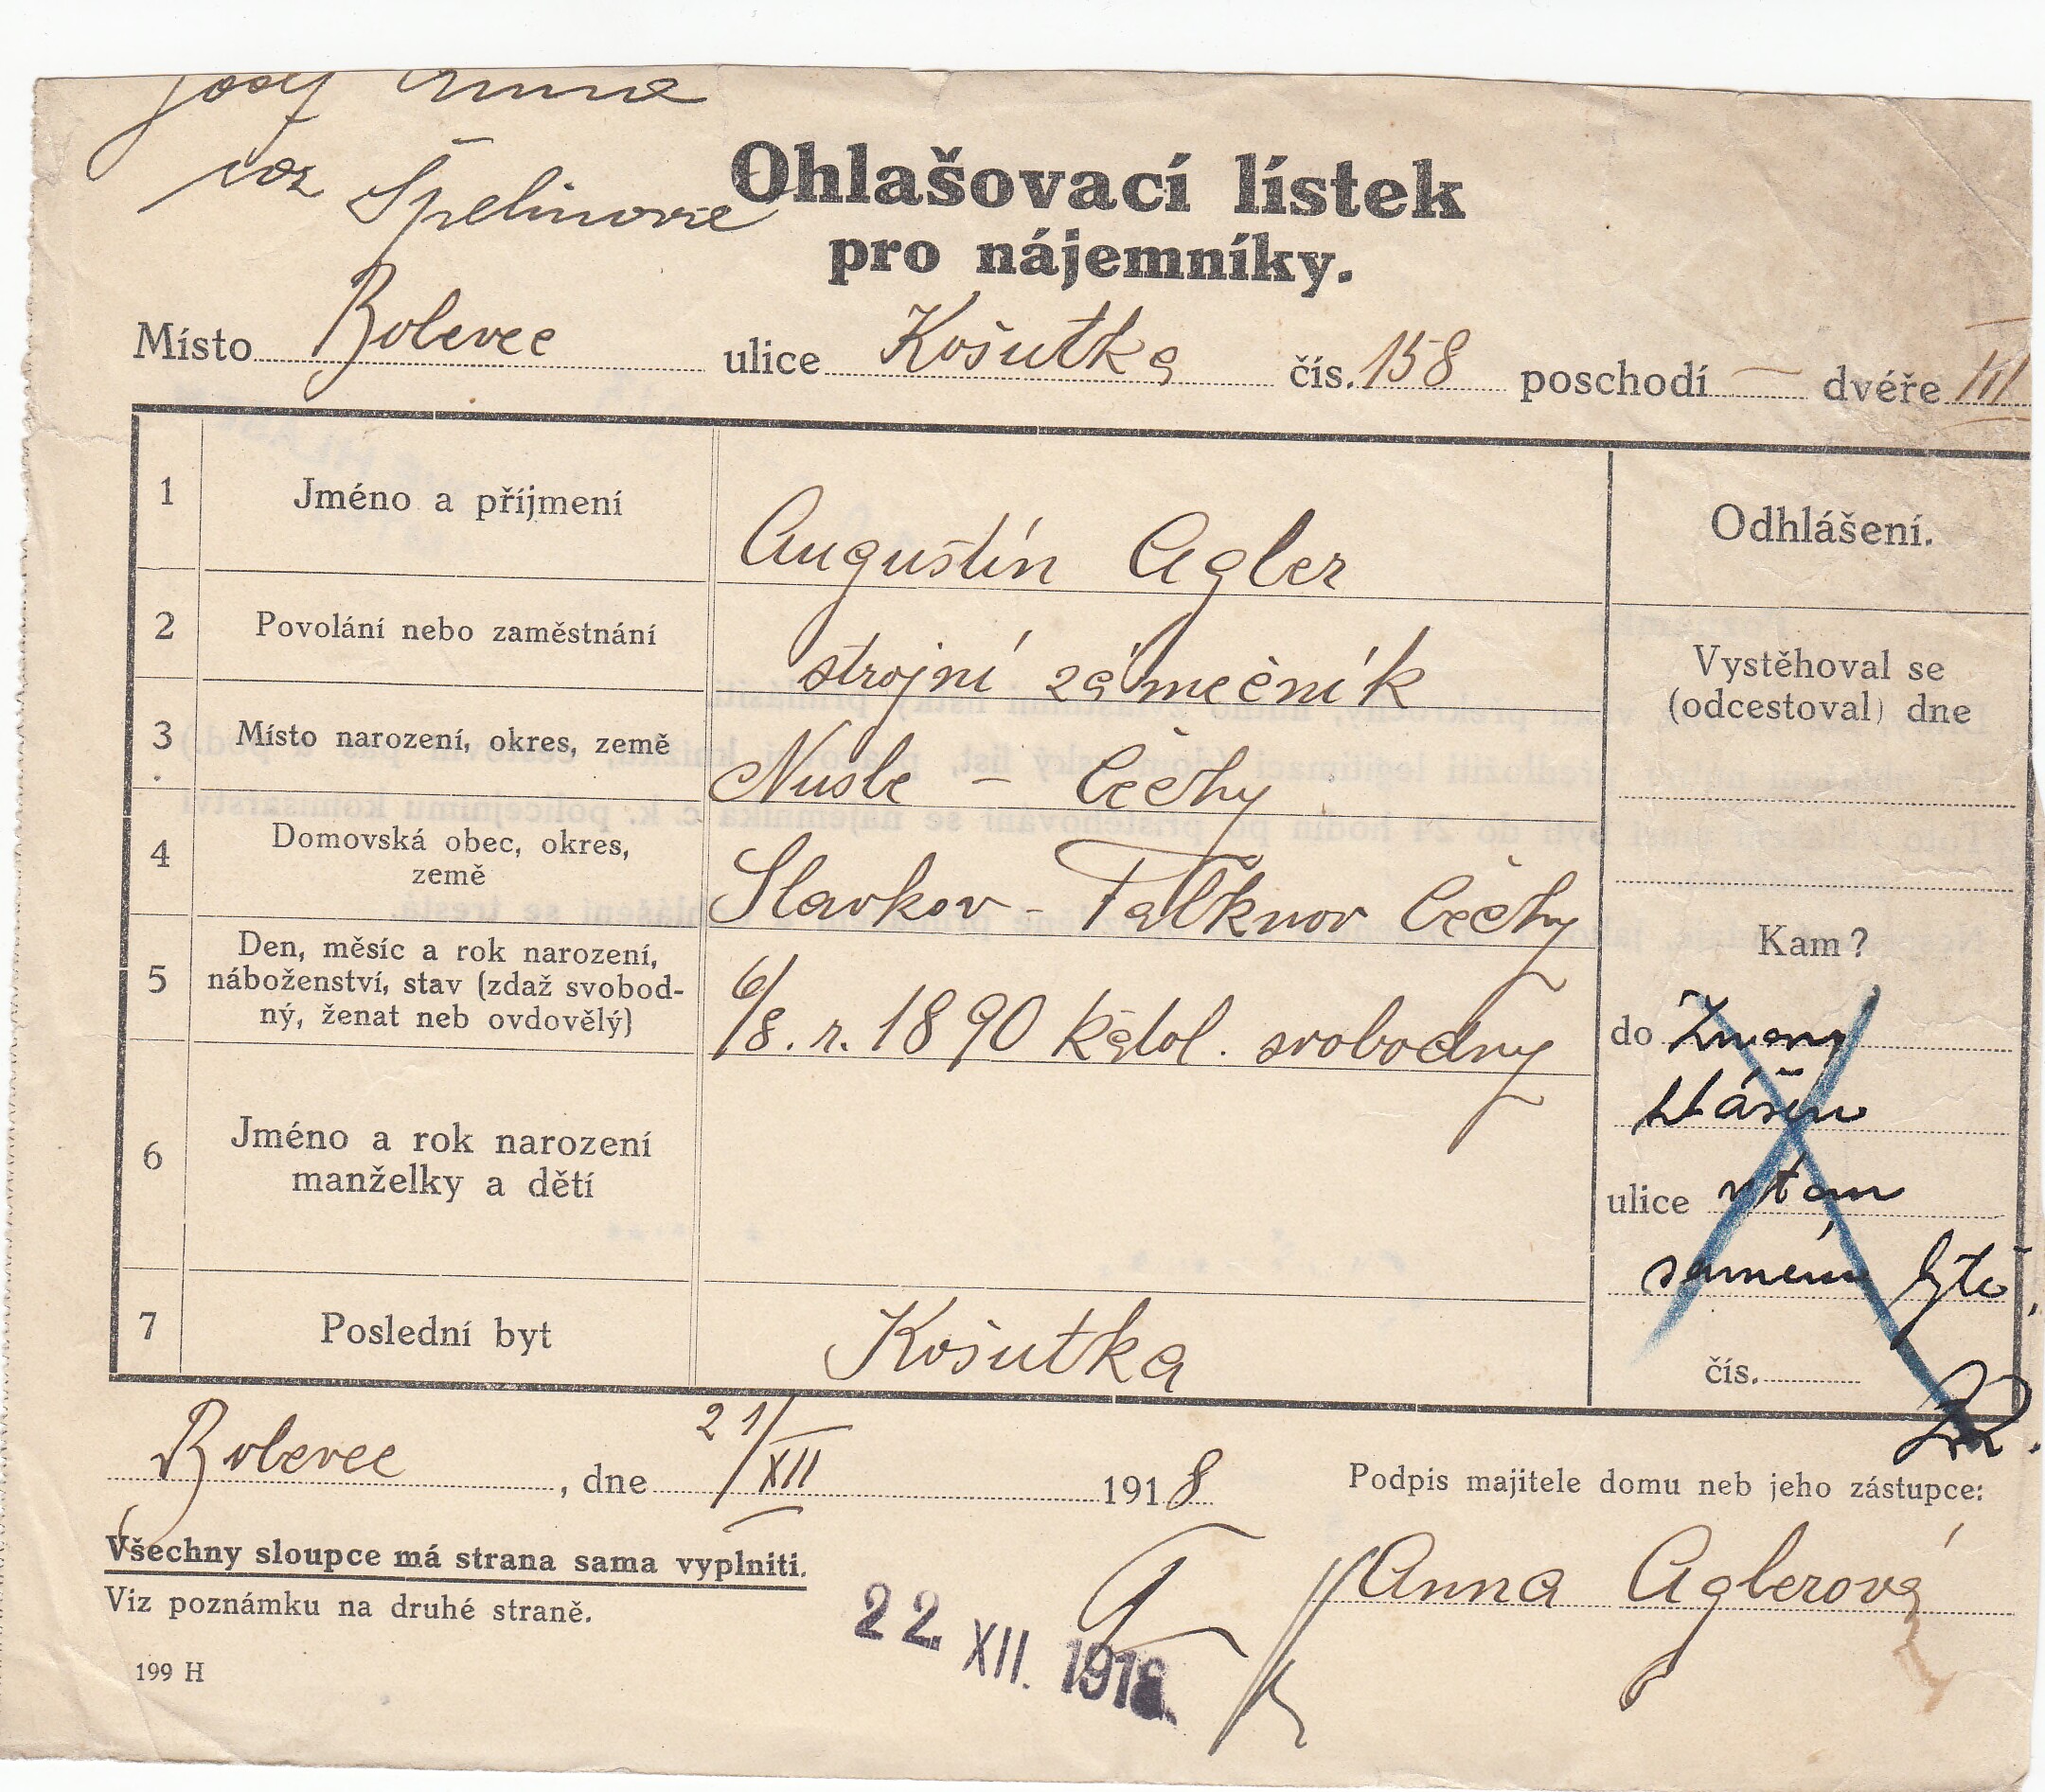 Josef Anna
roz Špelinové
Ohlašovací lístek
pro nájemníky.
Místo Bolevec ulice Košutka čís. 158 poschodí — dvéře III
1 Jméno a příjmení Augustín Agler
Odhlášení.
2 Povolání nebo zaměstnání strojní zámečník
Vystěhoval se
(odcestoval) dne
3 Místo narození, okres, země Nusle – Čechy
4 Domovská obec, okres,
země
Slavkov – Falknov Čechy
Kam?
5 Den, měsíc a rok narození,
náboženství, stav (zdaž svobod-
ný, ženat neb ovdovělý)
6/8. r. 1890 kátol. svobodny
do Změny
hlášení
ulice v tom
samém bytě.
čís.
6 Jméno a rok narození
manželky a dětí
7 Poslední byt Košutka
Bolevec, dne 21/XII 1918
Podpis majitele domu neb jeho zástupce:
Anna Aglerová
Všechny sloupce má strana sama vyplniti.
Viz poznámku na druhé straně.
22. XII. 1918
199 H